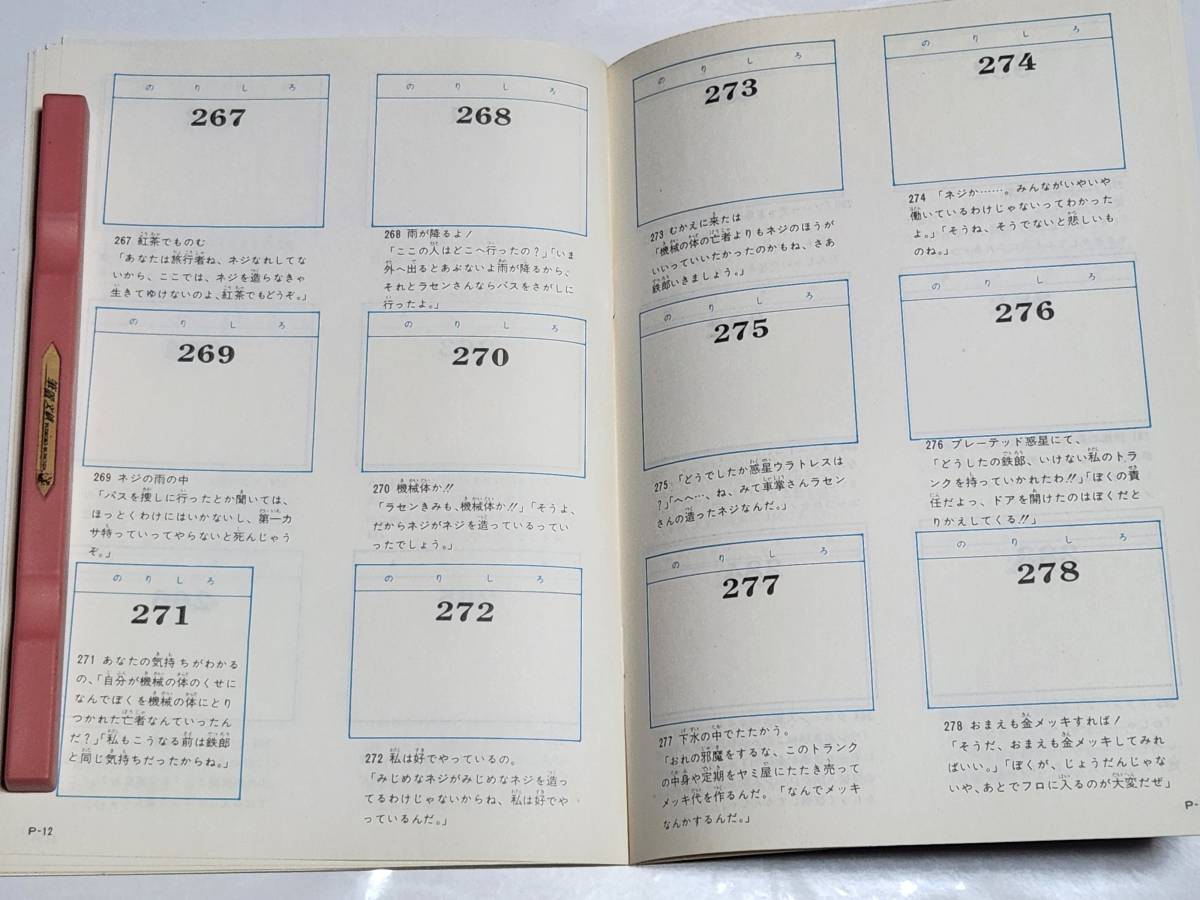 のりしろ
267
267 紅茶でものむ
「あなたは旅行者ね、ネジなれしてな
いから、ここでは、ネジを造らなきゃ
生きてゆけないのよ、紅茶でもどうぞ。」
のりしろ
268
268 雨が降るよ!
「ここの人はどこへ行ったの?」「いま
外へ出るとあぶないよ雨が降るから、
それとラセンさんならバスをさがしに
行ったよ。」
のりしろ
269
269 ネジの雨の中
「バスを捜しに行ったとか聞いては、
ほっとくわけにはいかないし、第一カ
サ持っていってやらないと死んじゃう
ぞ。」
のりしろ
270
270 機械体か!!
「ラセンきみも、機械体か!!」「そうよ、
だからネジがネジを造っているってい
ったでしょう。」
のりしろ
271
271 あなたの気持ちがわかる
の、「自分が機械の体のくせに
なんでぼくを機械の体にとり
つかれた亡者なんていったん
だ?」「私もこうなる前は鉄郎
と同じ気持ちだったからね。」
のりしろ
272
272 私は好でやっているの。
「みじめなネジがみじめなネジを造っ
てるわけじゃないからね、私は好でや
っているんだ。」
P-12
のりしろ
273
273 むかえに来たは
「機械の体の亡者よりもネジのほうが
いいっていいたかったのかもね、さあ
鉄郎いきましょう。」
のりしろ
274
274 「ネジか……。みんながいやいや
働いているわけじゃないってわかった
よ。」「そうね、そうでないと悲しいも
のね。」
のりしろ
275
275 「どうでしたか惑星ウラトレスは
?」「へへ…、ね、みて車掌さんラセン
さんの造ったネジなんだ。」
のりしろ
276
276 プレーテッド惑星にて、
「どうしたの鉄郎、いけない私のトラ
ンクを持っていかれたわ!!」「ぼくの責
任だよっ、ドアを開けたのはぼくだと
りかえしてくる!!」
のりしろ
277
277 下水の中でたたかう。
「おれの邪魔をするな、このトランク
の中身や定期をヤミ屋にたたき売って
メッキ代を作るんだ。「なんでメッキ
なんかするんだ。」
のりしろ
278
278 おまえも金メッキすれば!
「そうだ、おまえも金メッキしてみれ
ばいい。」「ぼくが、じょうだんじゃな
いや、あとでフロに入るのが大変だぜ」
P-